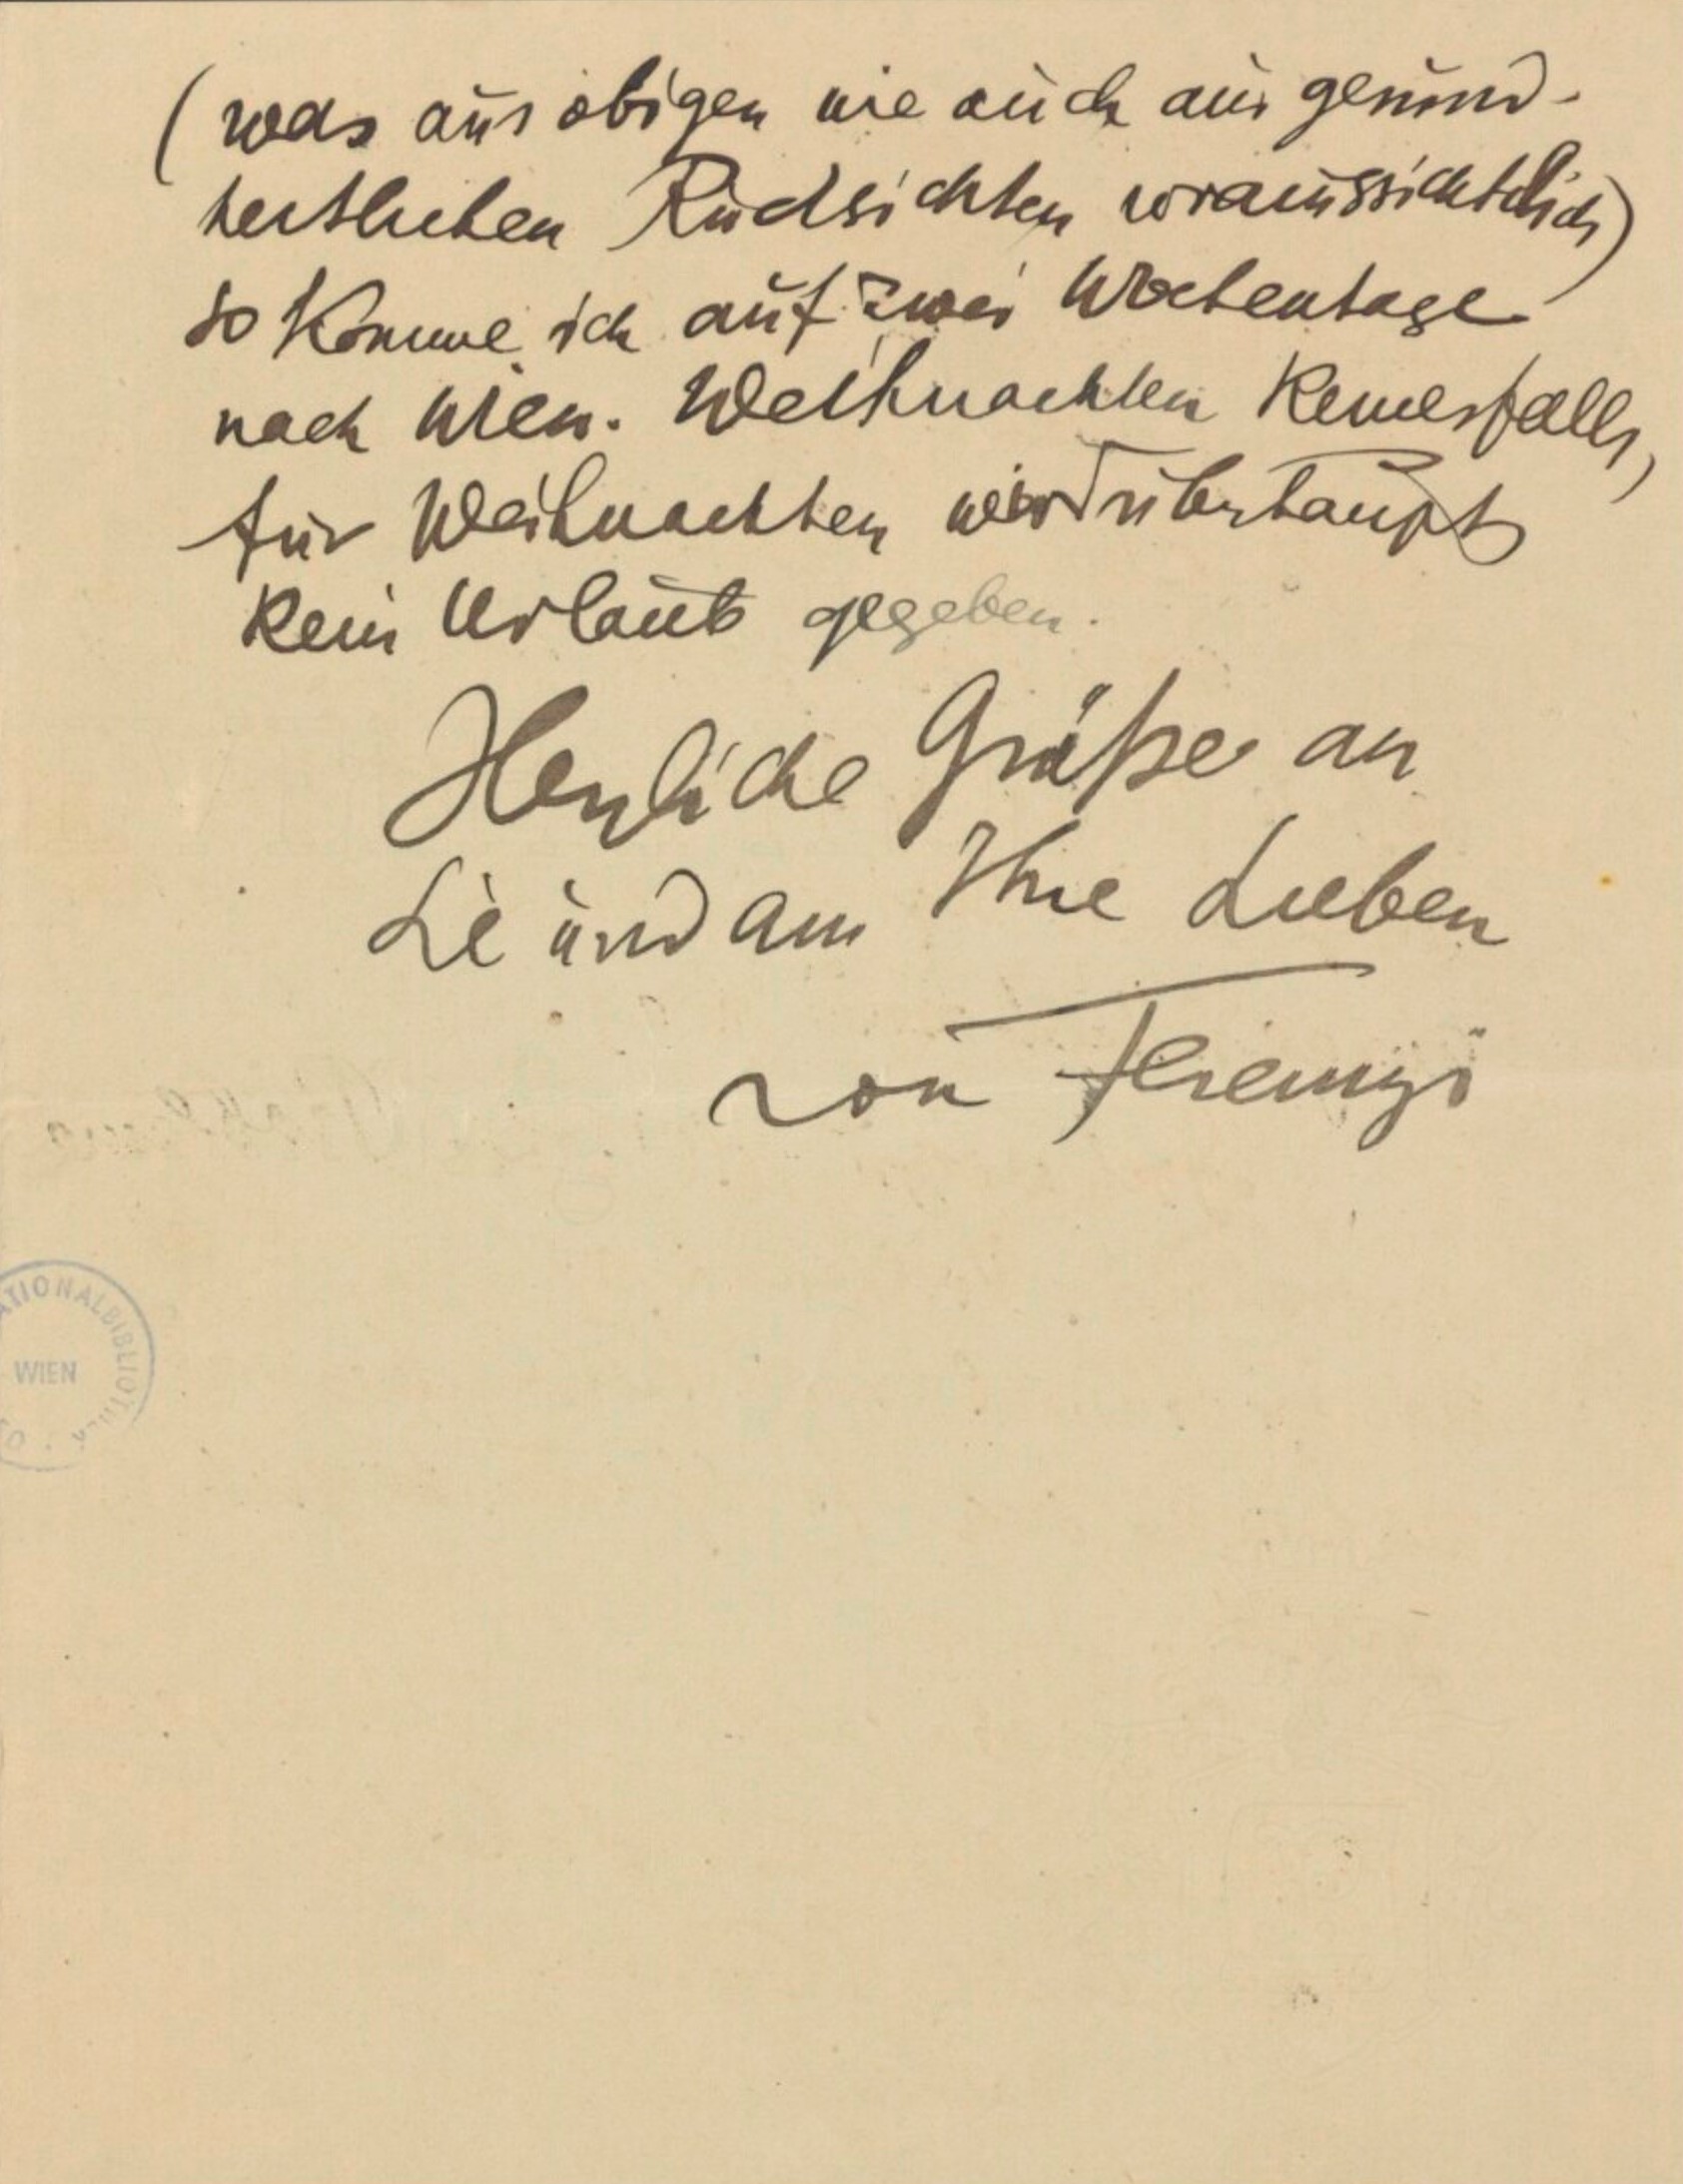 (was aus obigen wie auch aus gesund-
heitlichen Rücksichten voraussichtlich)
so komme ich auf zwei Wochentage
nach Wien. Weihnachten keinesfalls,
für Weihnachten wird überhaupt
kein Urlaub gegeben.
Herzliche Grüße an
Sie und an Ihre Lieben
von Ferenczi
ATIONALBIBLIOTHEK
WIEN